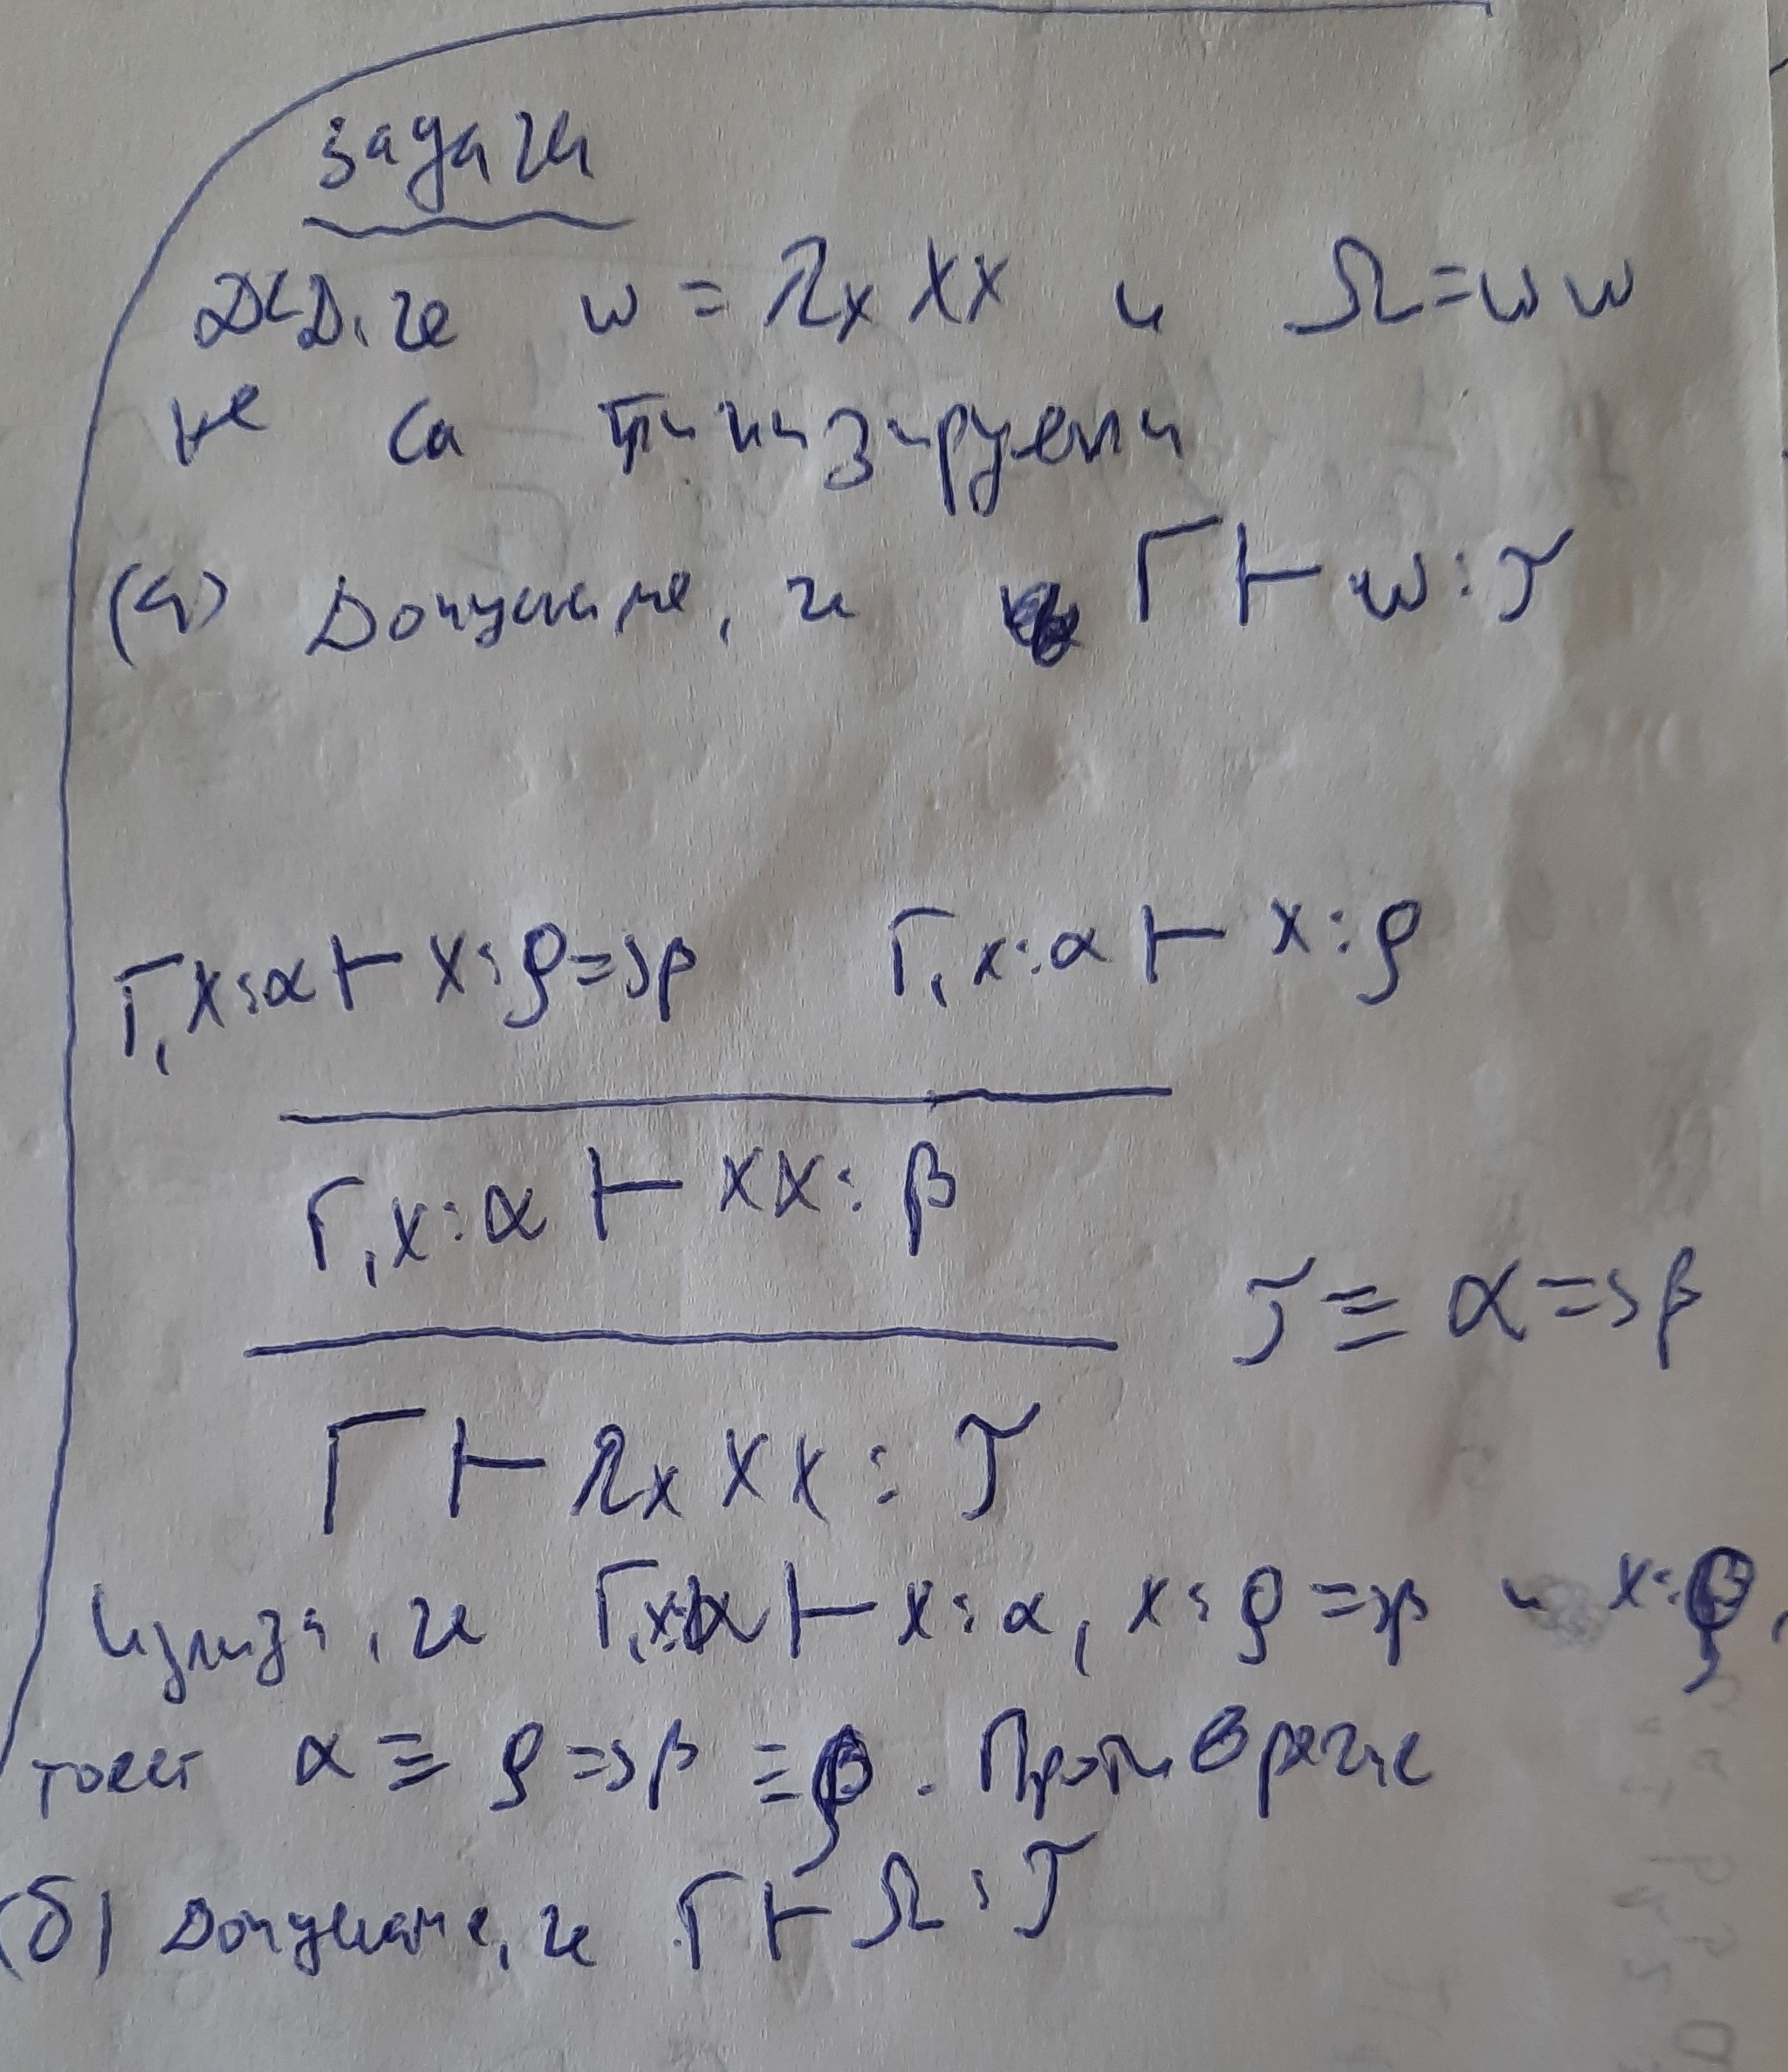 задача
ДКД, че ω = λx xx и Ω = ωω
не са типизируеми
(а) Допускаме, че Γ ⊢ ω : τ
Γ, x:α ⊢ x : ρ ⇒ β Γ, x:α ⊢ x : ρ
Γ, x:α ⊢ xx : β
τ ≡ α ⇒ β
Γ ⊢ λx xx : τ
Излиза, че Γ, x:α ⊢ x:α, x:ρ ⇒ β и x:ρ,
тоест α ≡ ρ ⇒ β ≡ ρ. Противоречие
(б) Допускаме, че Γ ⊢ Ω : τ